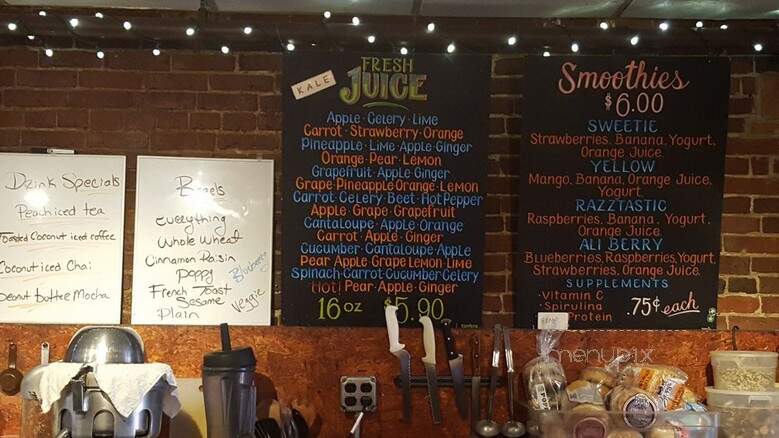 Drink Specials
Peach iced tea
Toasted Coconut iced coffee
Coconut iced Chai
Peanut butter Mocha
Bagels
Everything
Whole Wheat
Cinnamon Raisin
Poppy
Blueberry
French Toast
Sesame
Veggie
Plain
KALE
FRESH
JUICE
Apple · Celery · Lime
Carrot · Strawberry · Orange
Pineapple · Lime · Apple · Ginger
Orange · Pear · Lemon
Grapefruit · Apple · Ginger
Grape · Pineapple · Orange · Lemon
Carrot · Celery · Beet · Hot Pepper
Apple · Grape · Grapefruit
Cantaloupe · Apple · Orange
Carrot · Apple · Ginger
Cucumber · Cantaloupe · Apple
Pear · Apple · Grape · Lemon · Lime
Spinach · Carrot · Cucumber · Celery
Hot! Pear · Apple · Ginger
16 oz $5.90
Smoothies
$6.00
SWEETIE
Strawberries, Banana, Yogurt,
Orange Juice.
YELLOW
Mango, Banana, Orange Juice,
Yogurt
RAZZTASTIC
Raspberries, Banana, Yogurt,
Orange Juice
ALI BERRY
Blueberries, Raspberries, Yogurt,
Strawberries, Orange Juice.
SUPPLEMENTS
· Vitamin C
· Spirulina
Protein
.75¢ each
menupix